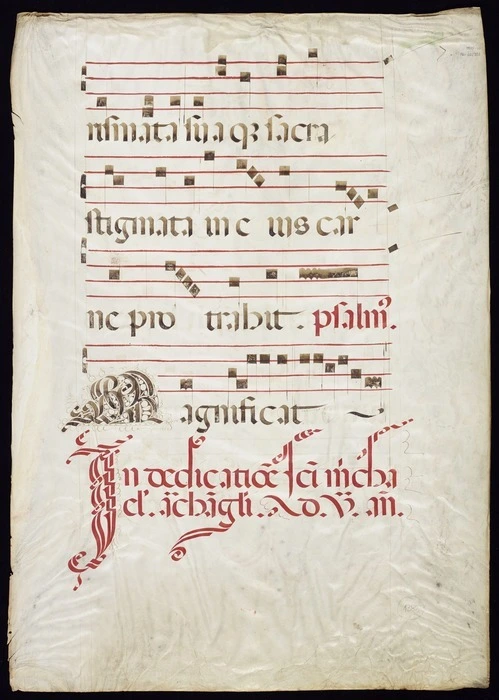 nsinuata sua qꝫ sacra
stigmata in e ius car
ne pro trahit. psalmꝰ.
Magnificat
In dedicatiōe sc̄i micha
el'. ar̄chāgli. Ad. V̄. an̄.